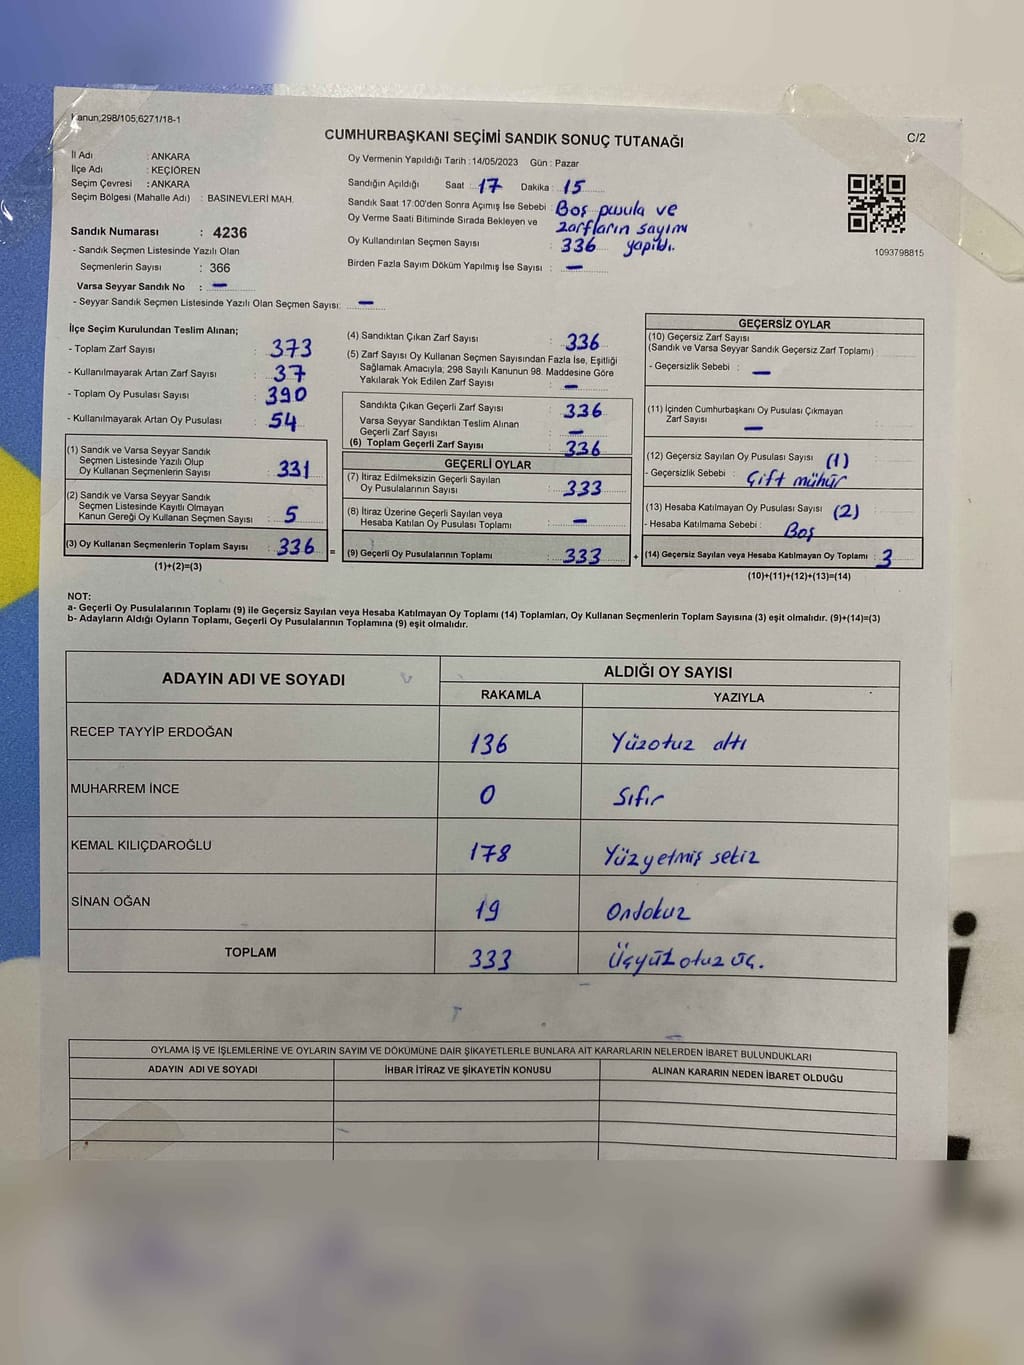 Kanun;298/105;6271/18-1
CUMHURBAŞKANI SEÇİMİ SANDIK SONUÇ TUTANAĞI
C/2
İl Adı : ANKARA
İlçe Adı : KEÇİÖREN
Seçim Çevresi : ANKARA
Seçim Bölgesi (Mahalle Adı) : BASINEVLERİ MAH.
Sandık Numarası : 4236
- Sandık Seçmen Listesinde Yazılı Olan
Seçmenlerin Sayısı : 366
Varsa Seyyar Sandık No : –
- Seyyar Sandık Seçmen Listesinde Yazılı Olan Seçmen Sayısı: –
Oy Vermenin Yapıldığı Tarih : 14/05/2023 Gün : Pazar
Sandığın Açıldığı Saat : 17 Dakika : 15
Sandık Saat 17:00'den Sonra Açımış İse Sebebi : Boş pusula ve
Oy Verme Saati Bitiminde Sırada Bekleyen ve zarfların sayımı
Oy Kullandırılan Seçmen Sayısı : 336 yapıldı.
Birden Fazla Sayım Döküm Yapılmış İse Sayısı : –
1093798815
İlçe Seçim Kurulundan Teslim Alınan;
- Toplam Zarf Sayısı : 373
- Kullanılmayarak Artan Zarf Sayısı : 37
- Toplam Oy Pusulası Sayısı : 390
- Kullanılmayarak Artan Oy Pusulası : 54
(1) Sandık ve Varsa Seyyar Sandık
Seçmen Listesinde Yazılı Olup
Oy Kullanan Seçmenlerin Sayısı : 331
(2) Sandık ve Varsa Seyyar Sandık
Seçmen Listesinde Kayıtlı Olmayan
Kanun Gereği Oy Kullanan Seçmen Sayısı : 5
(3) Oy Kullanan Seçmenlerin Toplam Sayısı : 336 =
(1)+(2)=(3)
(4) Sandıktan Çıkan Zarf Sayısı : 336
(5) Zarf Sayısı Oy Kullanan Seçmen Sayısından Fazla İse, Eşitliği
Sağlamak Amacıyla; 298 Sayılı Kanunun 98. Maddesine Göre
Yakılarak Yok Edilen Zarf Sayısı : –
Sandıkta Çıkan Geçerli Zarf Sayısı : 336
Varsa Seyyar Sandıktan Teslim Alınan
Geçerli Zarf Sayısı : –
(6) Toplam Geçerli Zarf Sayısı : 336
GEÇERLİ OYLAR
(7) İtiraz Edilmeksizin Geçerli Sayılan
Oy Pusulalarının Sayısı : 333
(8) İtiraz Üzerine Geçerli Sayılan veya
Hesaba Katılan Oy Pusulası Toplamı : –
(9) Geçerli Oy Pusulalarının Toplamı : 333 +
GEÇERSİZ OYLAR
(10) Geçersiz Zarf Sayısı
(Sandık ve Varsa Seyyar Sandık Geçersiz Zarf Toplamı) :
- Geçersizlik Sebebi : –
(11) İçinden Cumhurbaşkanı Oy Pusulası Çıkmayan
Zarf Sayısı : –
(12) Geçersiz Sayılan Oy Pusulası Sayısı : (1)
- Geçersizlik Sebebi : Çift mühür
(13) Hesaba Katılmayan Oy Pusulası Sayısı : (2)
- Hesaba Katılmama Sebebi : Boş
(14) Geçersiz Sayılan veya Hesaba Katılmayan Oy Toplamı : 3
(10)+(11)+(12)+(13)=(14)
NOT:
a- Geçerli Oy Pusulalarının Toplamı (9) ile Geçersiz Sayılan veya Hesaba Katılmayan Oy Toplamı (14) Toplamları, Oy Kullanan Seçmenlerin Toplam Sayısına (3) eşit olmalıdır. (9)+(14)=(3)
b- Adayların Aldığı Oyların Toplamı, Geçerli Oy Pusulalarının Toplamına (9) eşit olmalıdır.
ADAYIN ADI VE SOYADI
ALDIĞI OY SAYISI
RAKAMLA YAZIYLA
RECEP TAYYİP ERDOĞAN 136 Yüzotuz altı
MUHARREM İNCE 0 Sıfır
KEMAL KILIÇDAROĞLU 178 Yüzyetmiş sekiz
SİNAN OĞAN 19 Ondokuz
TOPLAM 333 Üçyüzotuz üç.
OYLAMA İŞ VE İŞLEMLERİNE VE OYLARIN SAYIM VE DÖKÜMÜNE DAİR ŞİKAYETLERLE BUNLARA AİT KARARLARIN NELERDEN İBARET BULUNDUKLARI
ADAYIN ADI VE SOYADI İHBAR İTİRAZ VE ŞİKAYETİN KONUSU ALINAN KARARIN NEDEN İBARET OLDUĞU